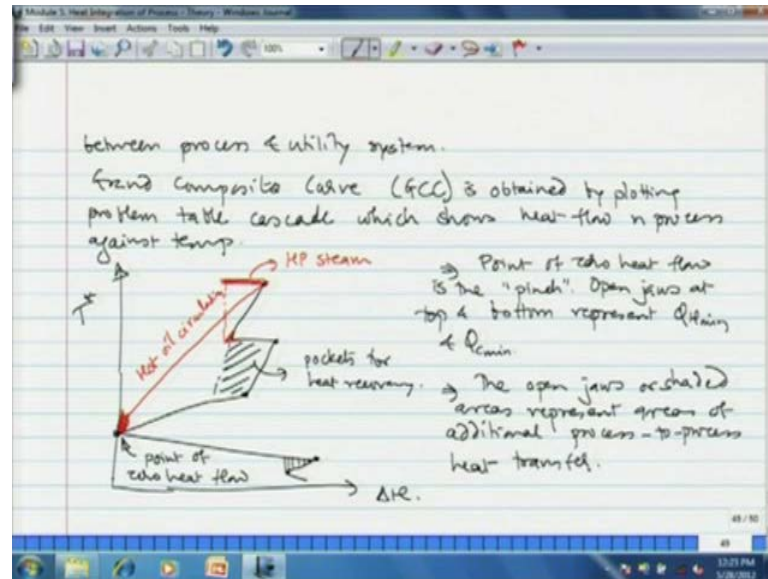 Module 5. Heat Integration of Process - Theory - Windows Journal
File Edit View Insert Actions Tools Help
100%
between process & utility system.
Grand Composite Curve (GCC) is obtained by plotting
problem table cascade which shows heat flow n process
against temp.
T*
HP steam
Hot oil circulation
pockets for
heat recovery.
point of
zero heat flow
ΔH.
⇒ Point of zero heat flow
is the "pinch". Open jaws at
top & bottom represent QHmin
& Qcmin.
⇒ The open jaws or shaded
areas represent areas of
additional process-to-process
heat transfer.
49 / 50
49
12:23 PM
5/28/2012